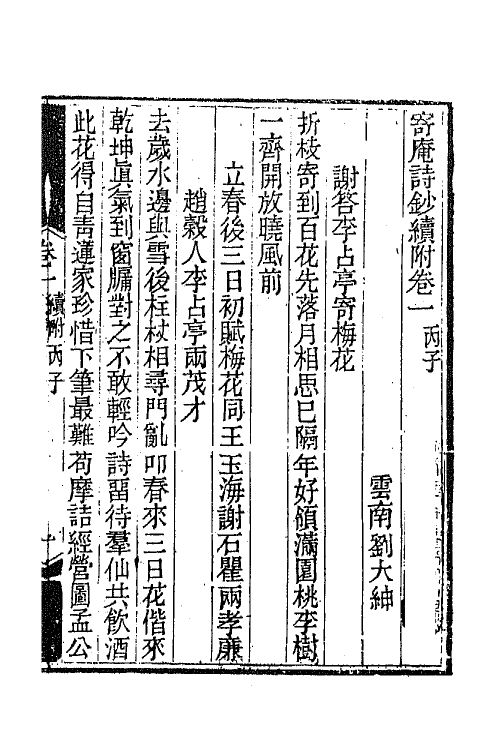 寄庵詩鈔續附卷一 丙子
雲南劉大紳
謝答李占亭寄梅花
折枝寄到百花先落月相思已隔年好領滿園桃李樹
一齊開放曉風前
立春後三日初賦梅花同王玉海謝石瞿兩孝廉
趙穀人李占亭兩茂才
去歲水邊與雪後柱杖相尋門亂叩春來三日花偕來
乾坤眞氣到窗牖對之不敢輕吟詩畱待羣仙共飲酒
此花得自靑蓮家珍惜下筆最難苟摩詰經營圖孟公
卷一 續附 丙子
一